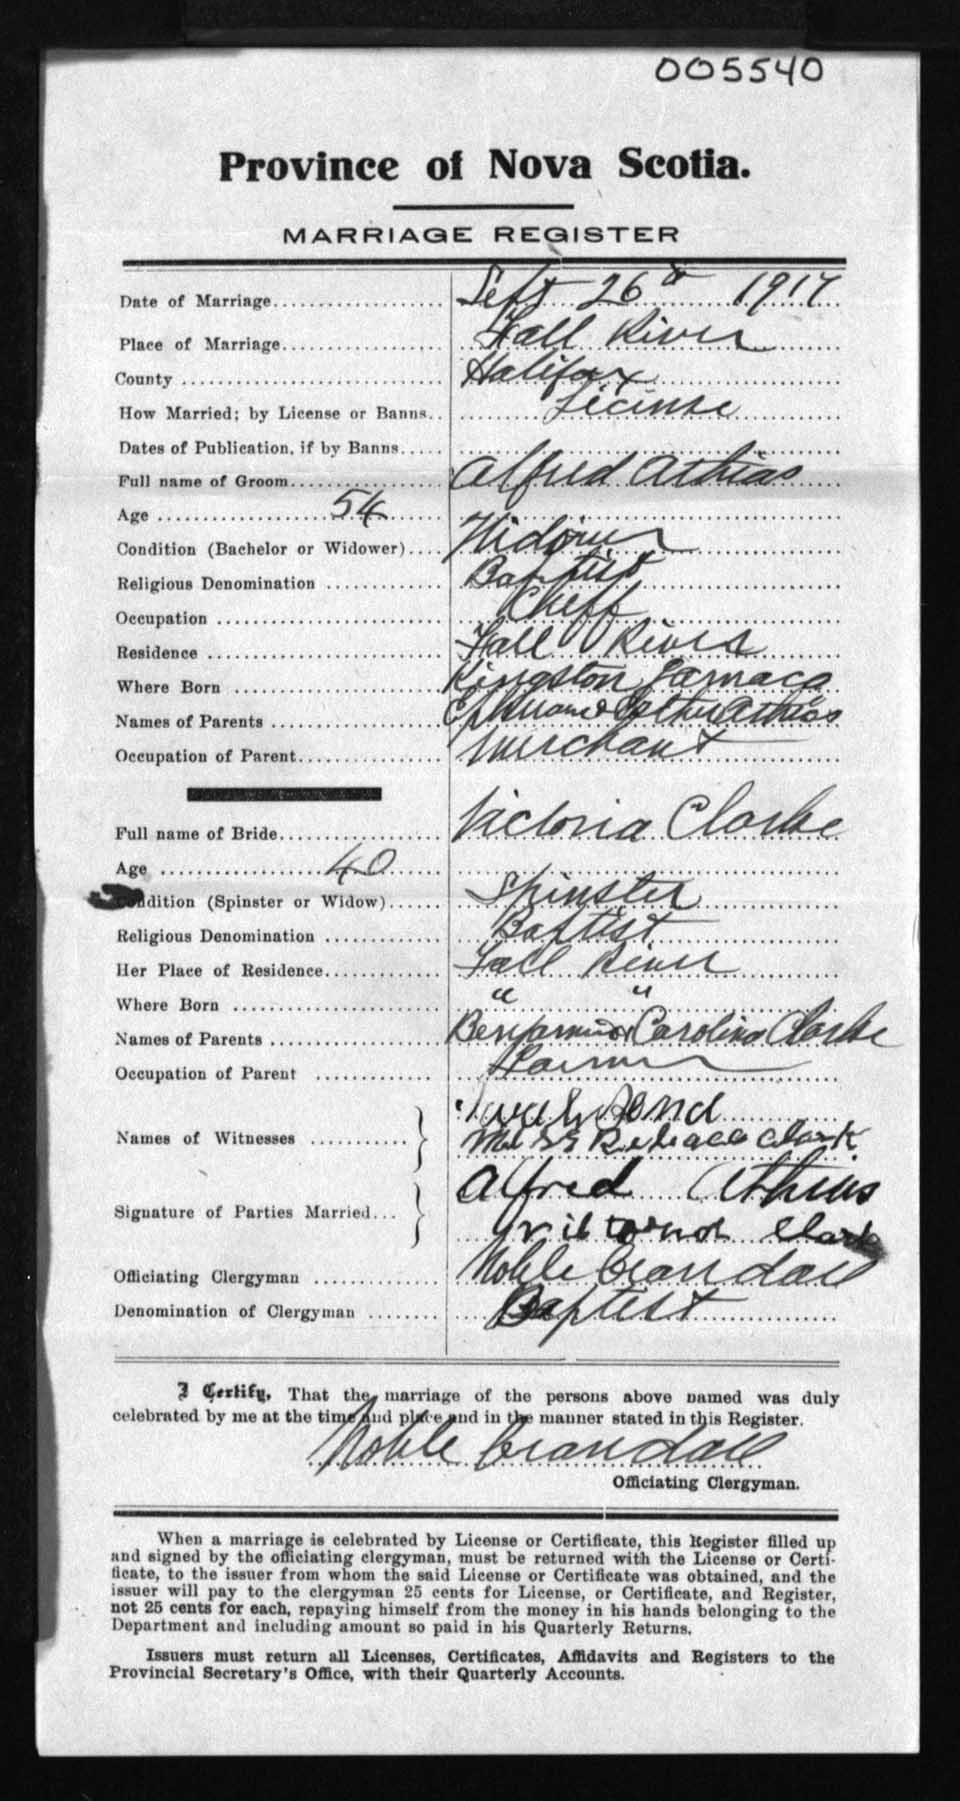 005540
Province of Nova Scotia.
MARRIAGE REGISTER
Date of Marriage Sept 26th 1917
Place of Marriage Fall River
County Halifax
How Married; by License or Banns License
Dates of Publication, if by Banns
Full name of Groom Alfred Athias
Age 54
Condition (Bachelor or Widower) Widower
Religious Denomination Baptist
Occupation Cheff
Residence Fall River
Where Born Kingston Jamaca
Names of Parents Athias
Occupation of Parent Merchant
Full name of Bride Victoria Clarke
Age 40
Condition (Spinster or Widow) Spinster
Religious Denomination Baptist
Her Place of Residence Fall River
Where Born " "
Names of Parents Benjamin & Carolina Clarke
Occupation of Parent Farmer
Bond
Names of Witnesses Miss Clark
Alfred Athias
Signature of Parties Married Clark
Officiating Clergyman Noble Crandall
Denomination of Clergyman Baptist
I Certify, That the marriage of the persons above named was duly
celebrated by me at the time and place and in the manner stated in this Register.
Noble Crandall
Officiating Clergyman.
When a marriage is celebrated by License or Certificate, this Register filled up
and signed by the officiating clergyman, must be returned with the License or Certi-
ficate, to the issuer from whom the said License or Certificate was obtained, and the
issuer will pay to the clergyman 25 cents for License, or Certificate, and Register,
not 25 cents for each, repaying himself from the money in his hands belonging to the
Department and including amount so paid in his Quarterly Returns.
Issuers must return all Licenses, Certificates, Affidavits and Registers to the
Provincial Secretary's Office, with their Quarterly Accounts.